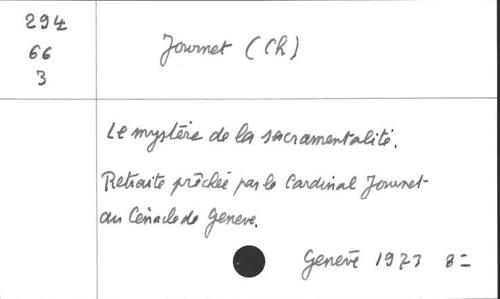 294
66
3
Journet (Ch)
Le mystère de la sacramentalité.
Retraite prêchée par le Cardinal Journet
au Cénacle de Genève.
Genève 1973 8=